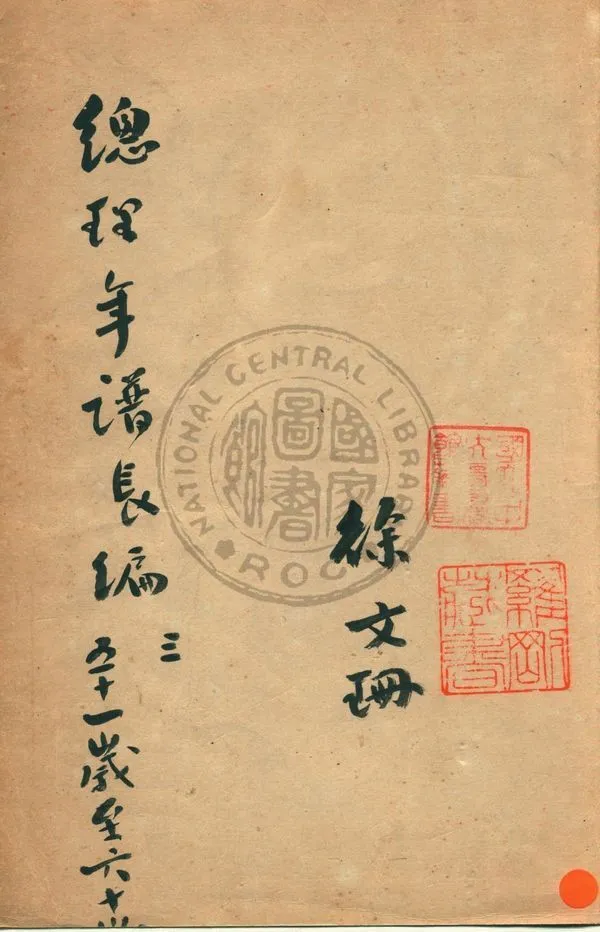 徐文珊
總理年譜長編
三
五十一歲至六十歲
NATIONAL CENTRAL LIBRARY
ROC
國家圖書館
羅剛藏書